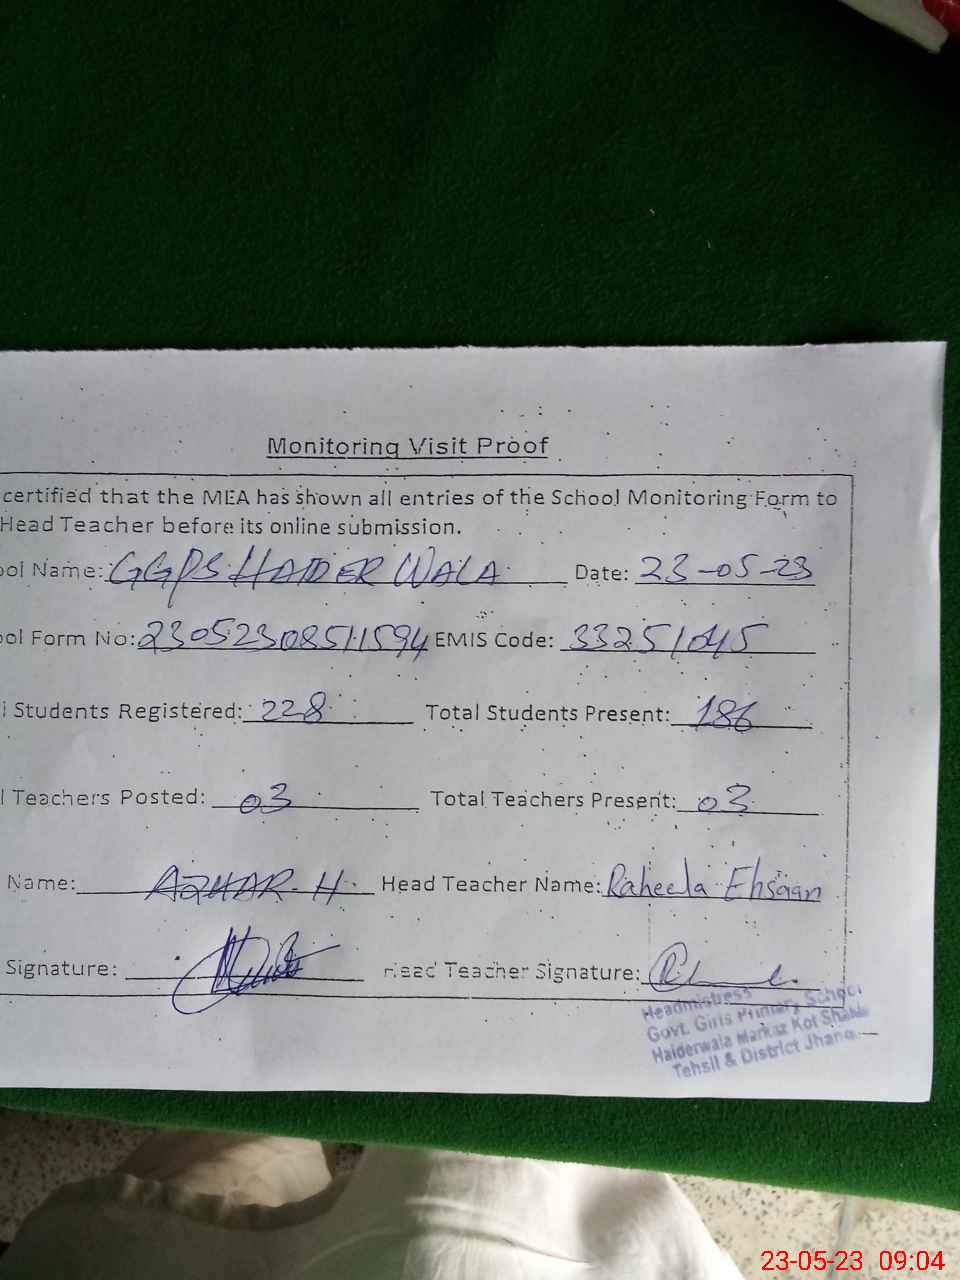 Monitoring Visit Proof
certified that the MEA has shown all entries of the School Monitoring Form to
Head Teacher before its online submission.
ool Name: GGPS HAIDER WALA Date: 23-05-23
ool Form No: 23052308511594 EMIS Code: 33251045
l Students Registered: 228 Total Students Present: 186
l Teachers Posted: 03 Total Teachers Present: 03
Name: AZHAR-H Head Teacher Name: Raheela Ehsaan
Signature: Head Teacher Signature:
Headmistress
Govt. Girls Primary School
Haiderwala Markaz Kot Shakir
Tehsil & District Jhang
23-05-23 09:04